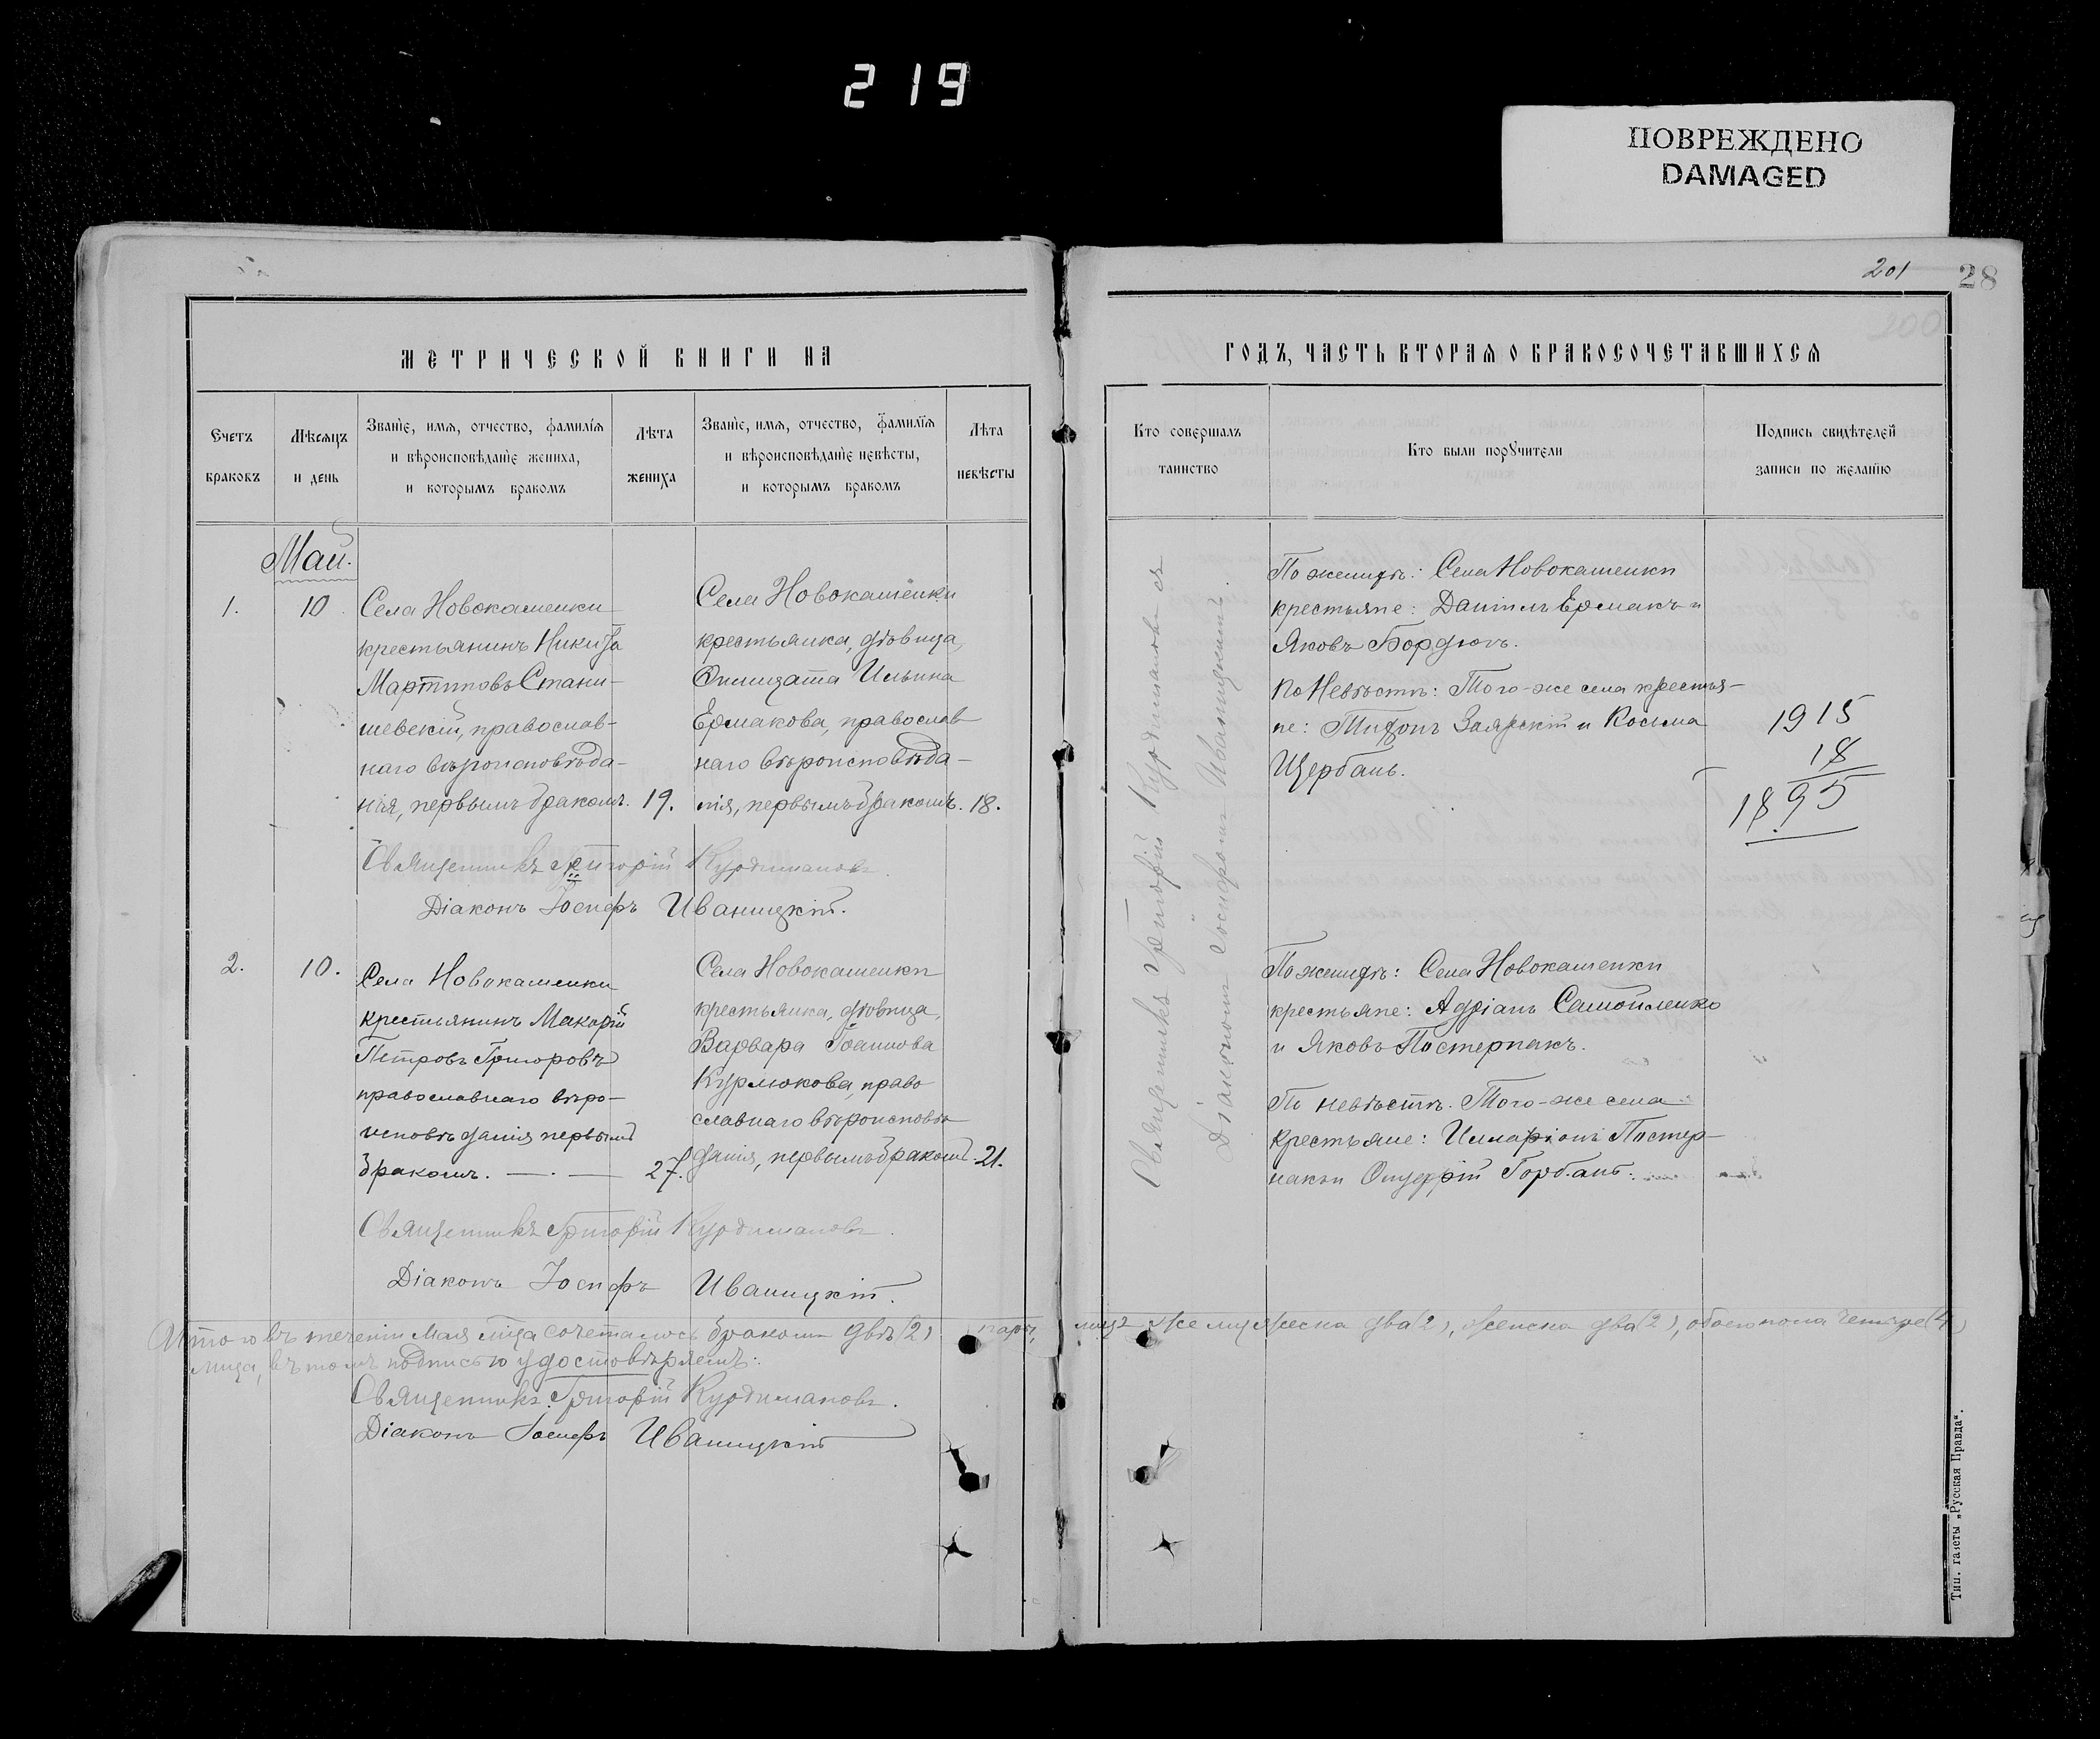 219
ПОВРЕЖДЕНО
DAMAGED
201
28
200
МЕТРИЧЕСКОЙ КНИГИ НА
Счетъ браковъ
Мѣсяцъ и день
Званїе, имя, отчество, фамилїя
и вѣроисповѣданїе жениха,
и которымъ бракомъ
Лѣта жениха
Званїе, имя, отчество, фамилїя
и вѣроисповѣданїе невѣсты,
и которымъ бракомъ
Лѣта невѣсты
Май.
1.
10
Села Новокашенки
крестьянинъ Никита
Мартиновъ Стани-
шевскій, православ-
наго вѣроисповѣда-
нія, первымъ бракомъ.
19.
Села Новокашенки
крестьянка, дѣвица,
Ермакова, православ-
наго вѣроисповѣда-
нія, первымъ бракомъ.
18.
Священникъ Григорій Курдимановъ.
Діаконъ Іосифъ Иваницкій.
2.
10.
Села Новокашенки
крестьянинъ Макарій
Петровъ Григоровъ
православнаго вѣро-
исповѣданія первымъ
бракомъ.
27.
Села Новокашенки
крестьянка, дѣвица,
Варвара Іоаннова
Курлюкова, право
славнаго вѣроисповѣ
данія, первымъ бракомъ.
21.
Священникъ Григорій Курдимановъ.
Діаконъ Іосифъ Иваницкій.
Итого въ теченіи Мая м-ца сочеталось бракомъ двѣ (2) пары, лицъ же мужеска два (2), женска два (2), обоего пола четыре (4)
лица, въ томъ подписью удостовѣряемъ:
Священникъ Григорій Курдимановъ.
Діаконъ Іосифъ Иваницкій
ГОДЪ, ЧАСТЬ ВТОРАЯ О БРАКОСОЧЕТАВШИХСЯ
Кто совершалъ таинство
Кто были порꙋчители
Подпись свидѣтелей
записи по желанїю
Священникъ Григорій Курдимановъ съ
Діакономъ Іосифомъ Иваницкимъ.
По женихѣ: Села Новокашенки
крестьяне: Даніилъ Ермакъ и
Яковъ Бордюкъ.
По Невѣстѣ: Того-же села крестья-
не: Тифонъ Заярскій и Косьма
Щербань.
1915
18
1895
По женихѣ: Села Новокашенки
крестьяне: Адріанъ Самойленко
и Яковъ Постернакъ.
По невѣстѣ. Того-же села
Крестьяне: Илларіонъ Постер-
накъ и Онуфрій Горбань.
Тип. газеты „Русская Правда".